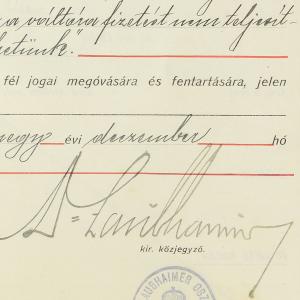 za váltóra fizetést nem teljesít-
hetünk".
fél jogai megóvására és fentartására, jelen
negy évi deczember hó
Dr Laubhaimer
kir. közjegyző.
LAUGHAIMER OSZ